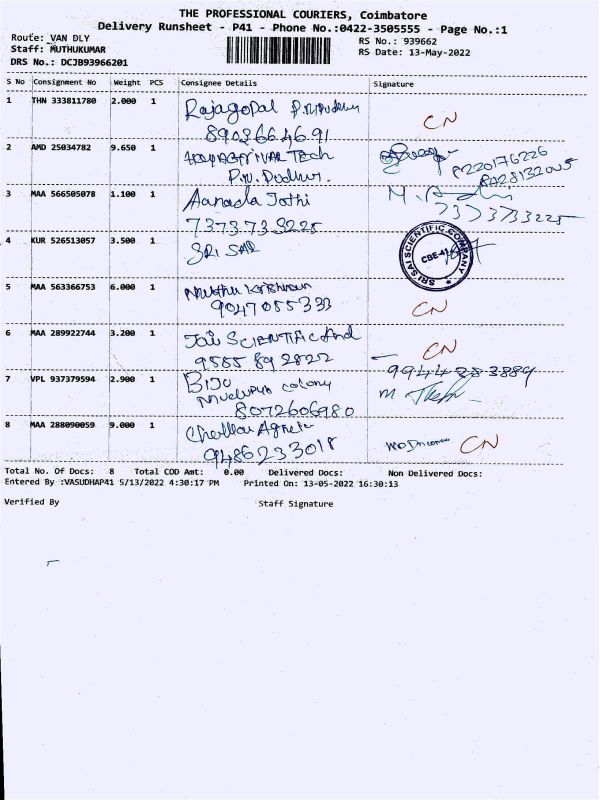 THE PROFESSIONAL COURIERS, Coimbatore
Delivery Runsheet - P41 - Phone No.:0422-3505555 - Page No.:1
Route: VAN DLY
RS No.: 939662
Staff: MUTHUKUMAR
RS Date: 13-May-2022
DRS No.: DCJB93966201
S No Consignment No Weight PCS Consignee Details Signature
1 THN 333811780 2.000 1 Rajagopal P.N.Pudur
8903664691 CN
2 AMD 25034782 9.650 1 Tech
P.N. Pudur.
3 MAA 566505078 1.100 1 Aanada Jothi
7373733225 7373733225
4 KUR 526513057 3.500 1 SRI SAI
SRI SAI SCIENTIFIC COMPANY CBE-41
5 MAA 563366753 6.000 1 Muthu Krishnan
9047055333 CN
6 MAA 289922744 3.200 1 Jai SCIENTIFIC And
9585892822 CN
7 VPL 937379594 2.900 1 BIJO colony
8072606980
8 MAA 288090059 9.000 1 Chellai
9486233018 CN
Total No. Of Docs: 8 Total COD Amt: 0.00 Delivered Docs: Non Delivered Docs:
Entered By :VASUDHAP41 5/13/2022 4:30:17 PM Printed On: 13-05-2022 16:30:13
Verified By Staff Signature